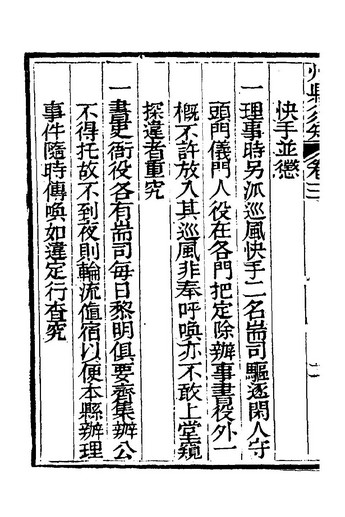 州縣須知 卷三
快手並懲
一理事時另派巡風快手二名耑司驅逐閑人守
頭門儀門人役在各門把定除辦事書役外一
概不許放入其巡風非奉呼喚亦不敢上堂窺
探違者重究
一書吏衙役各有耑司每日黎明俱要齊集辦公
不得托故不到夜則輪流值宿以便本縣辦理
事件隨時傳喚如違定行查究